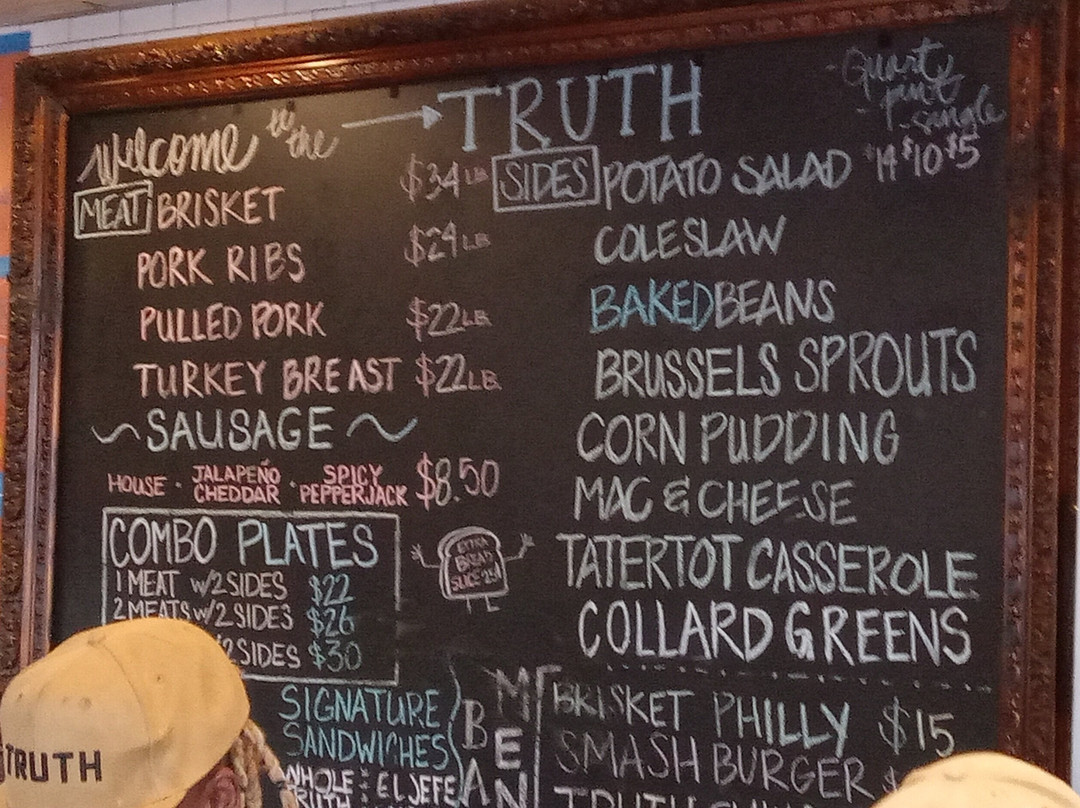 Welcome to the → TRUTH
- Quart
- pint
- single
MEAT BRISKET $34 LB
PORK RIBS $24 LB
PULLED PORK $22 LB
TURKEY BREAST $22 LB
~ SAUSAGE ~
HOUSE · JALAPEÑO CHEDDAR · SPICY PEPPERJACK $8.50
COMBO PLATES
1 MEAT W/2 SIDES $22
2 MEATS W/2 SIDES $26
2 SIDES $30
EXTRA
BREAD
SLICE 25¢
SIDES POTATO SALAD $14 $10 $5
COLESLAW
BAKED BEANS
BRUSSELS SPROUTS
CORN PUDDING
MAC & CHEESE
TATERTOT CASSEROLE
COLLARD GREENS
SIGNATURE
SANDWICHES
WHOLE : EL JEFE
BRISKET PHILLY $15
SMASH BURGER $
TRUTH